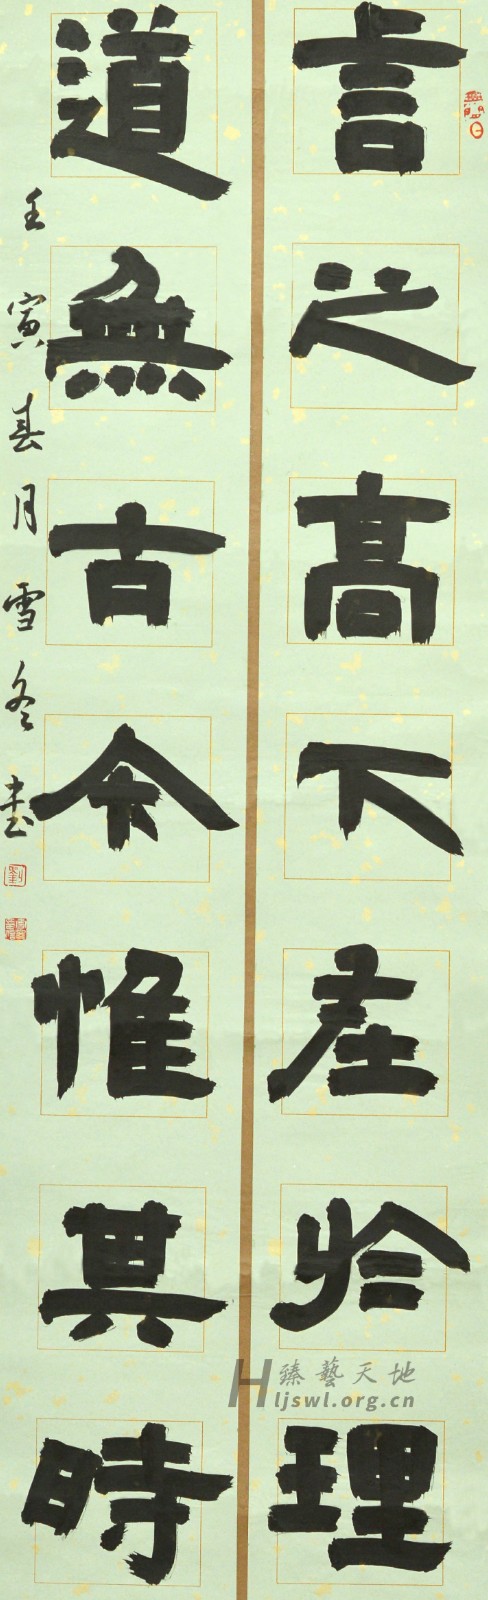 言之高下在於理
道無古今惟其時
壬寅春月雪冬書
臻藝天地
Hljswl.org.cn